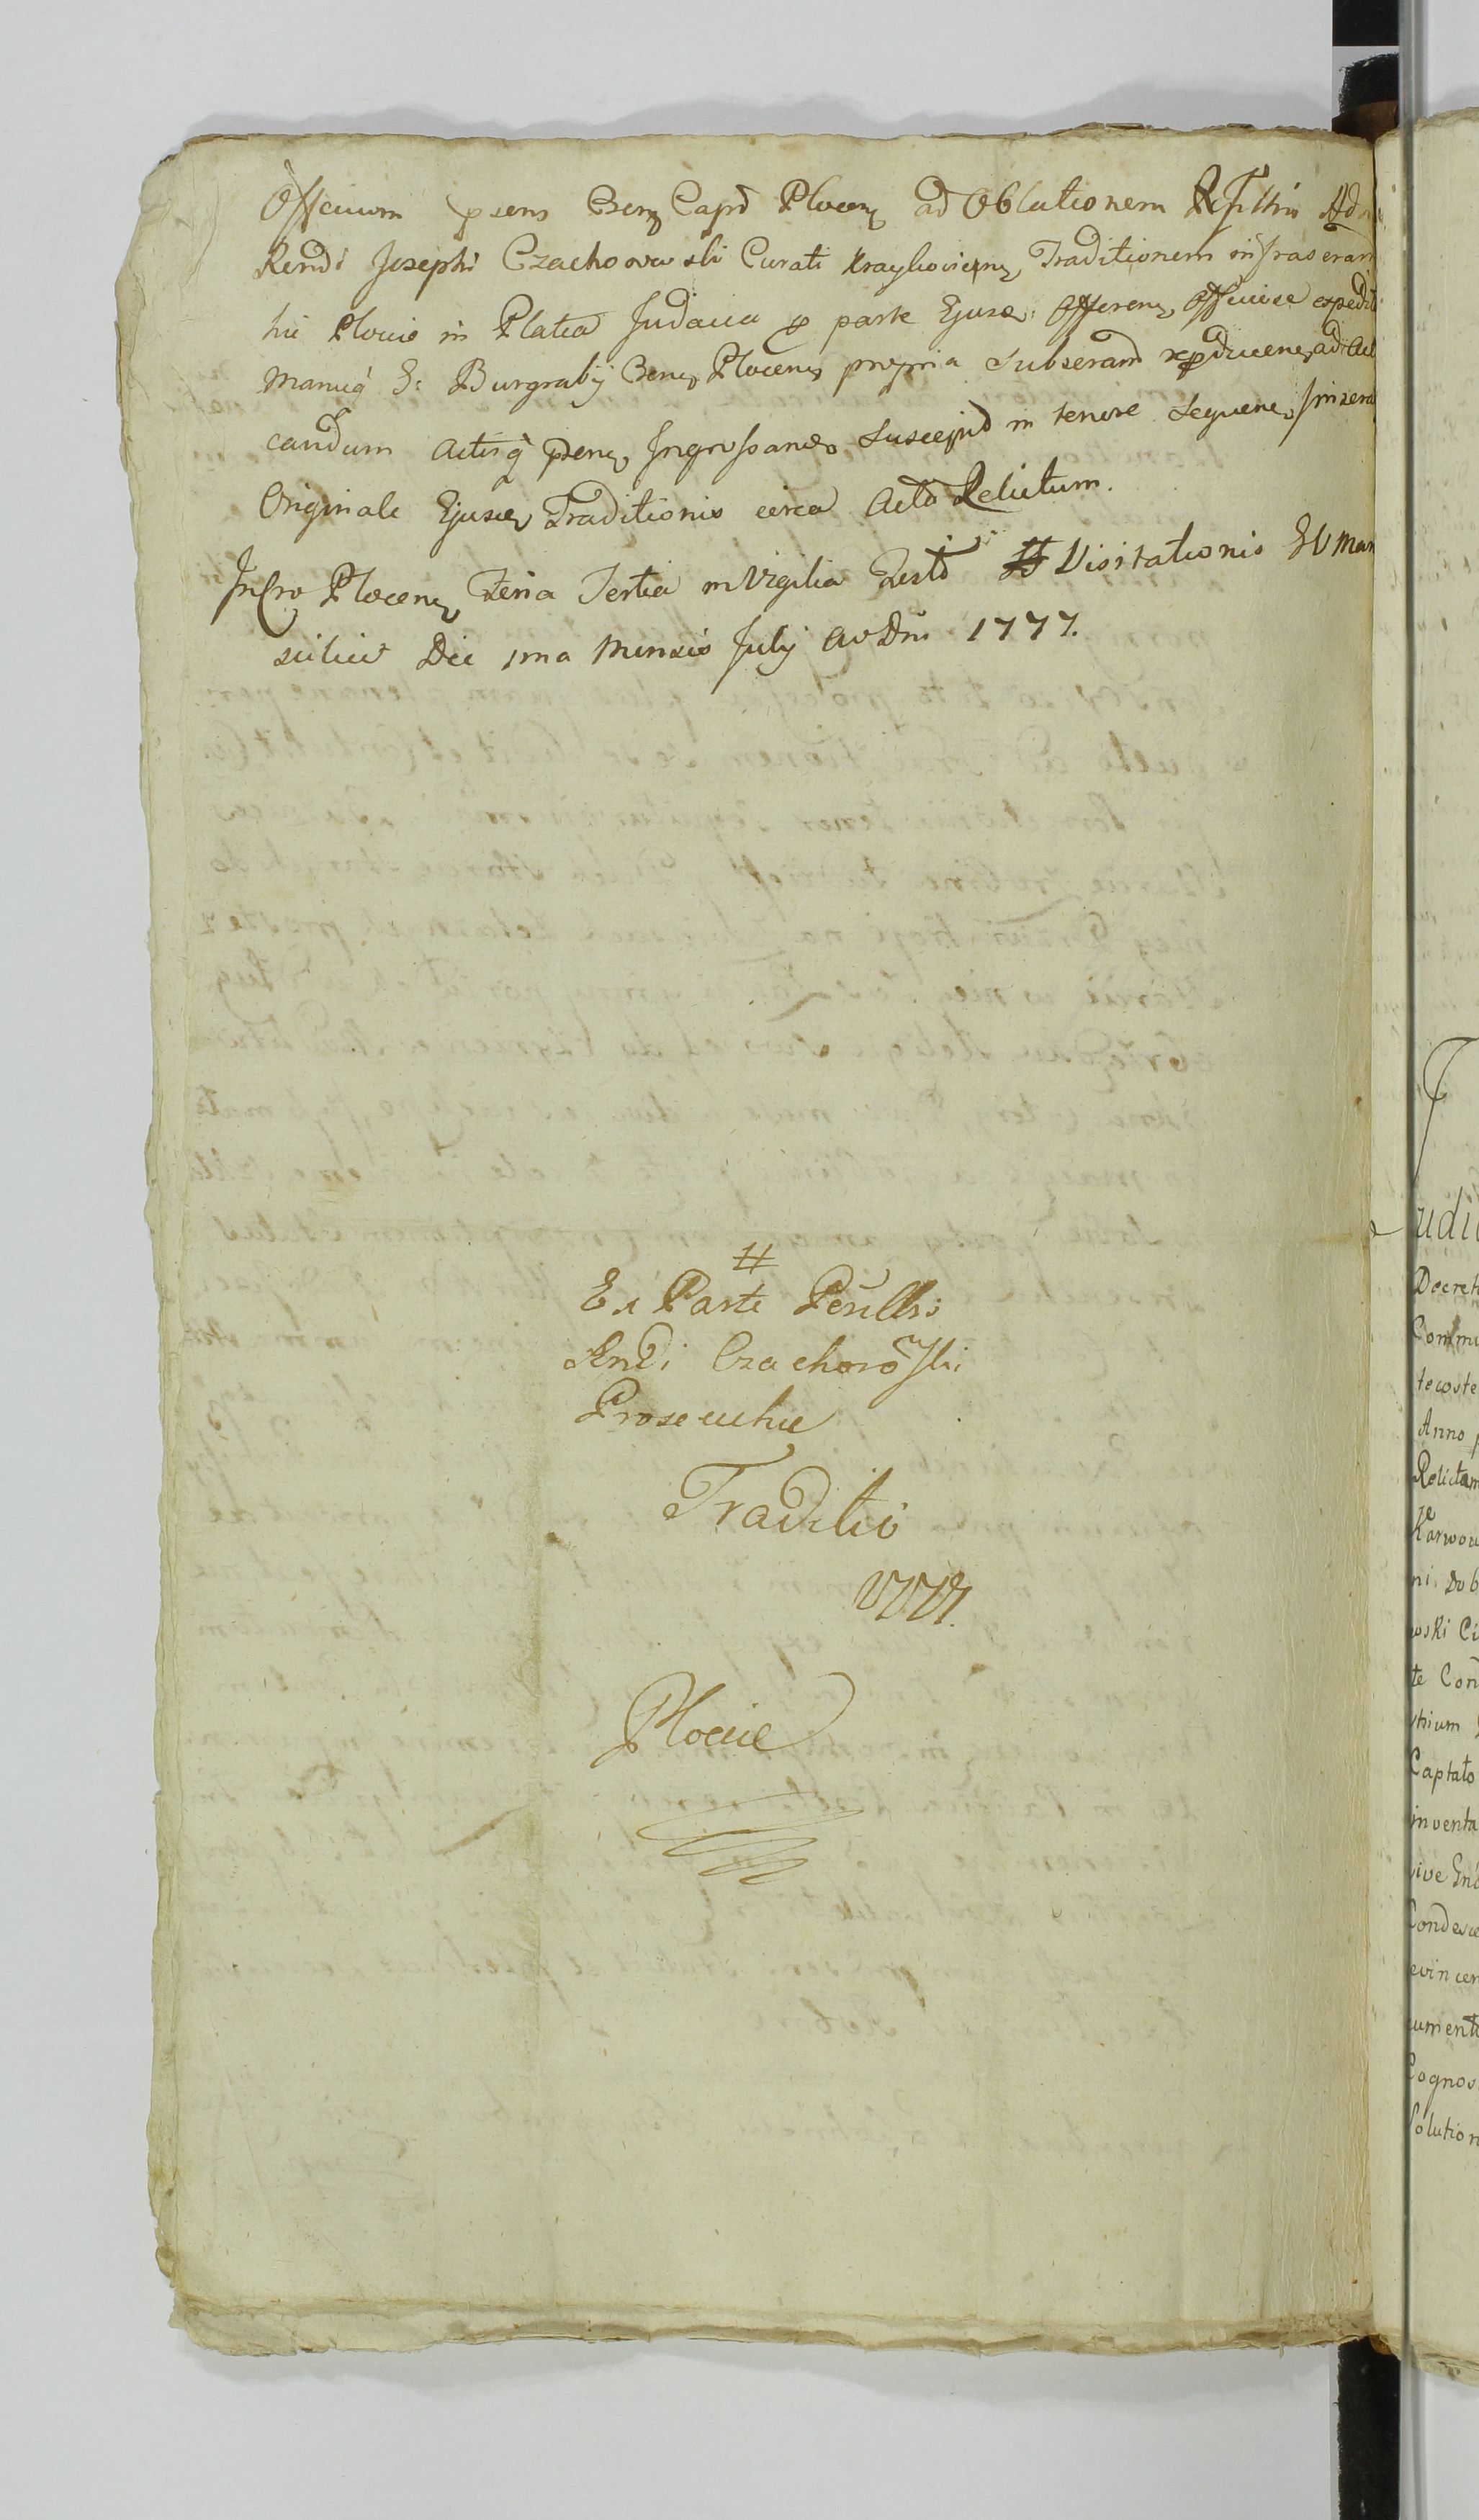 Officium psens Cren Capt Plocen ad Oblationem Pllris Ad
Rendi Josephi Czachorowski Curati Kraykovien, Traditionem infrascram
hic Plocio in Platea Judaica p parte Ejusd: Offeren, Officiose expedit
Manuq G: Burgrabij Cren Plocen propria Subscram repducen, ad Acti
candum Actisq psen, Ingrossand Suscepit in tenore Sequen, Inseren
Originale Ejusd Traditionis circa Acta Relictum.
In Cro Plocen, Feria Tertia in Vigilia Festi Visitationis BV Mar
scilicet Die 1ma Mensis July Ao Dni 1777.
Ex Parte Perillris
Rndi Czachoroski
Prosecuthae
Traditio
1777.
Plociae
udi
Decret
Commi
tecoste
Anno
Relictam
Karwow
ni Dob
wski Ci
te Con
Captato
inventa
sive
Condesce
evincen
cument
Cognos
Solution